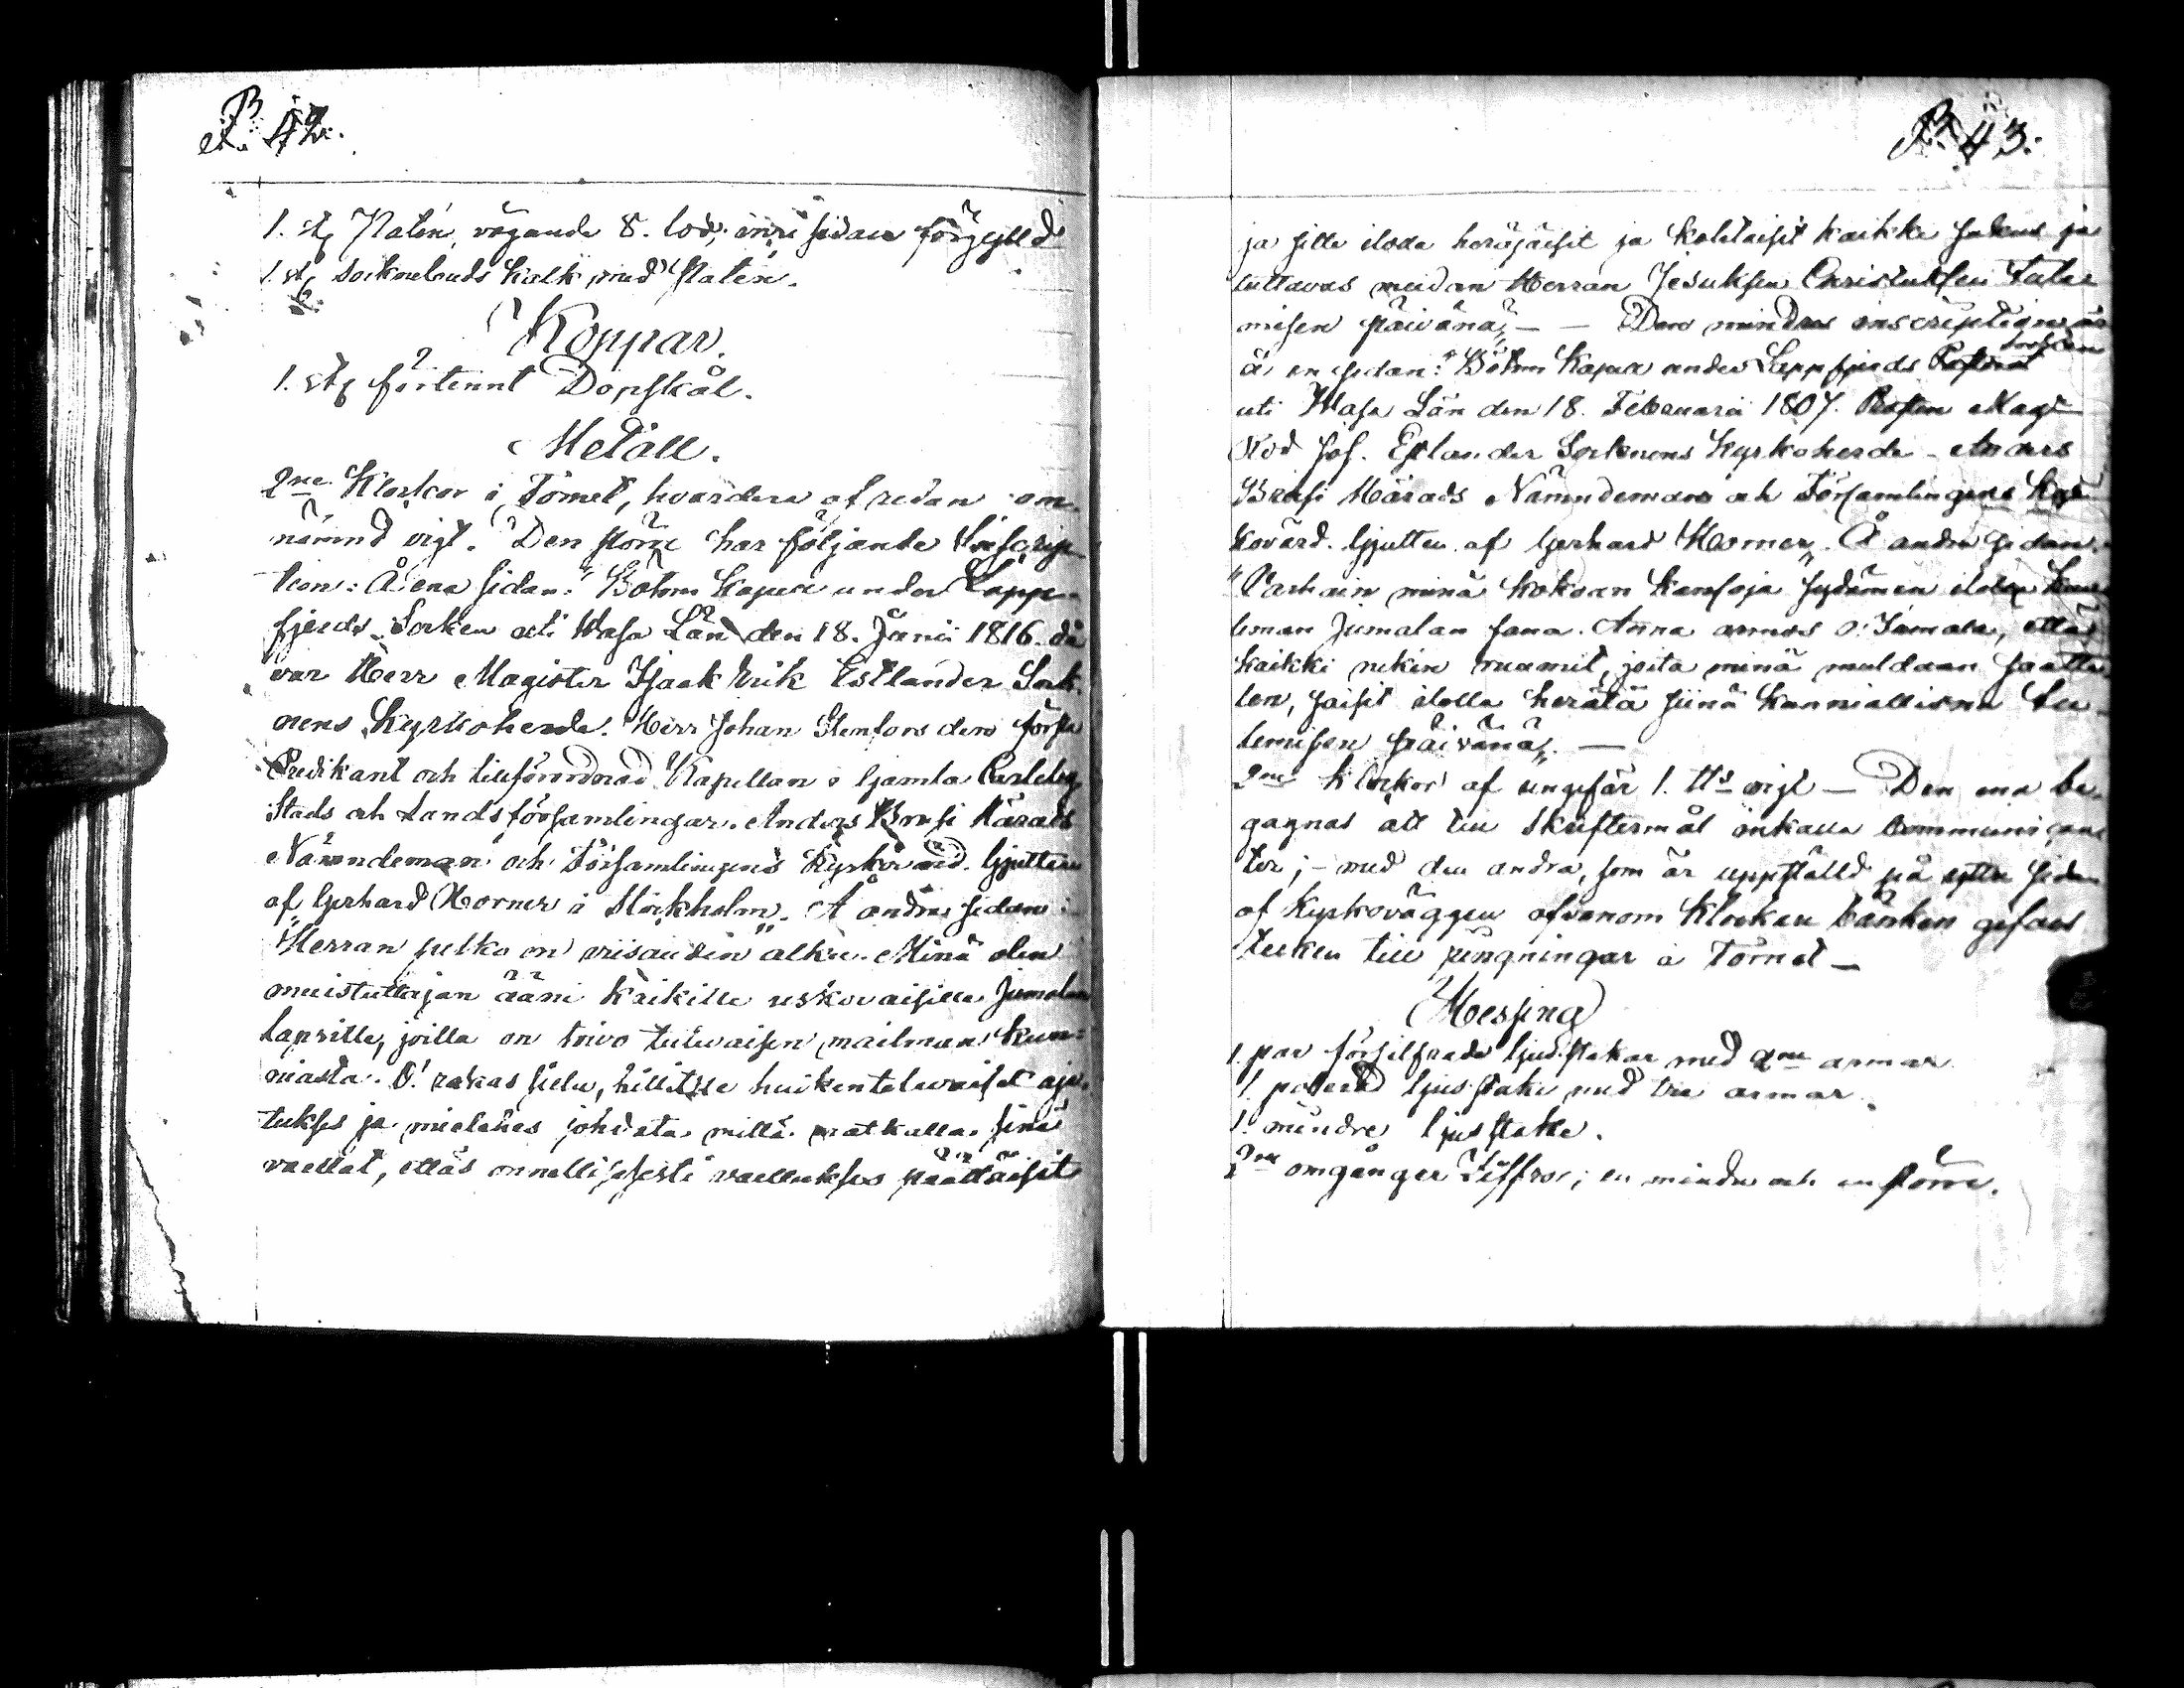 P. 42.
1. st. Patén, vägande 8. lod, inri sidan förgylld
1. st. Socknebuds Kalk med Patén.
Koppar.
1. st. förtennt Dopskål.
Metall.
2ne Klockor i Tornet, hvardera af redan om-
nämnd vigt. Den störe har följande Inscrip-
tion: Å ena sidan: "Bötom Kapell under Lapp-
fjerds Socken uti Wasa Län den 18. Junii 1816. då
var Herr Magister Isaak Erik Estlander Sock-
nens Kyrkoherde. Herr Johan Stenfors den första
Predikant och tillförordnad Kapellan i Gamla Carleby
Stads och Landsförsamlingar. Anders Brusi Härads
Nämndeman och Församlingens Kyrkovärd. Gjuten
af Gerhard Horner i Stockholm". Å andra sidan:
"Herran pelko on viisauden alku. Minä olen
muistuttajan ääni kaikille uskovaisille Jumalan
lapsille, joilla on toivo tulevaisen mailman kun-
niasta. O! rakas sielu, hillitse huikentelevaiset aja-
tukses ja mieles johdata millä matkalla sinä
vaellat, ettäs onnellisesti vaelluksес päättäisit
P. 43.
ja sille iloda heräjäisit ja kohtaisit kaikki
tuttavas meidän Herran Jesuksen Christuksen tule-
misen päivänä". — — Den mindres inscription är
å en sidan: "Bötom Kapell under Lappfjerds Socken
uti Wasa Län den 18. Februarii 1807. Prosten Mag.
Jos. Estlander Socknens Kyrkoherde - Anders
Brusi Härads Nämndeman och Församlingens Kyr-
kovärd. Gjutten af Gerhard Horner". Å andra sidan
"Parhain minä kokoan kansoja sydämen ilolla kuu-
leman Jumalan sana. Anna armos O! Jumala, ettäs
kaikki nekin ruumit, joita minä muldaan saatta-
len, saisit ilolla herätä siinä kunniallisna tu-
lemisen päivänä". —
2ne klockor af ungefär 1. vigt — Den ena be-
gagnas att till Skriftermål inkalla Communican-
ter; - med den andra, som är uppställd på yttre sidan
af Kyrkoväggen ofvanom Klockare bänken gifves
tecken till ringningar i Tornet —
Messing
1. par försilfrade ljusstakar med 2ne armar
1. polerad ljusstake med tre armar.
1. mindre ljusstake.
2ne omgånger Ziffror; en mindre och en störe.